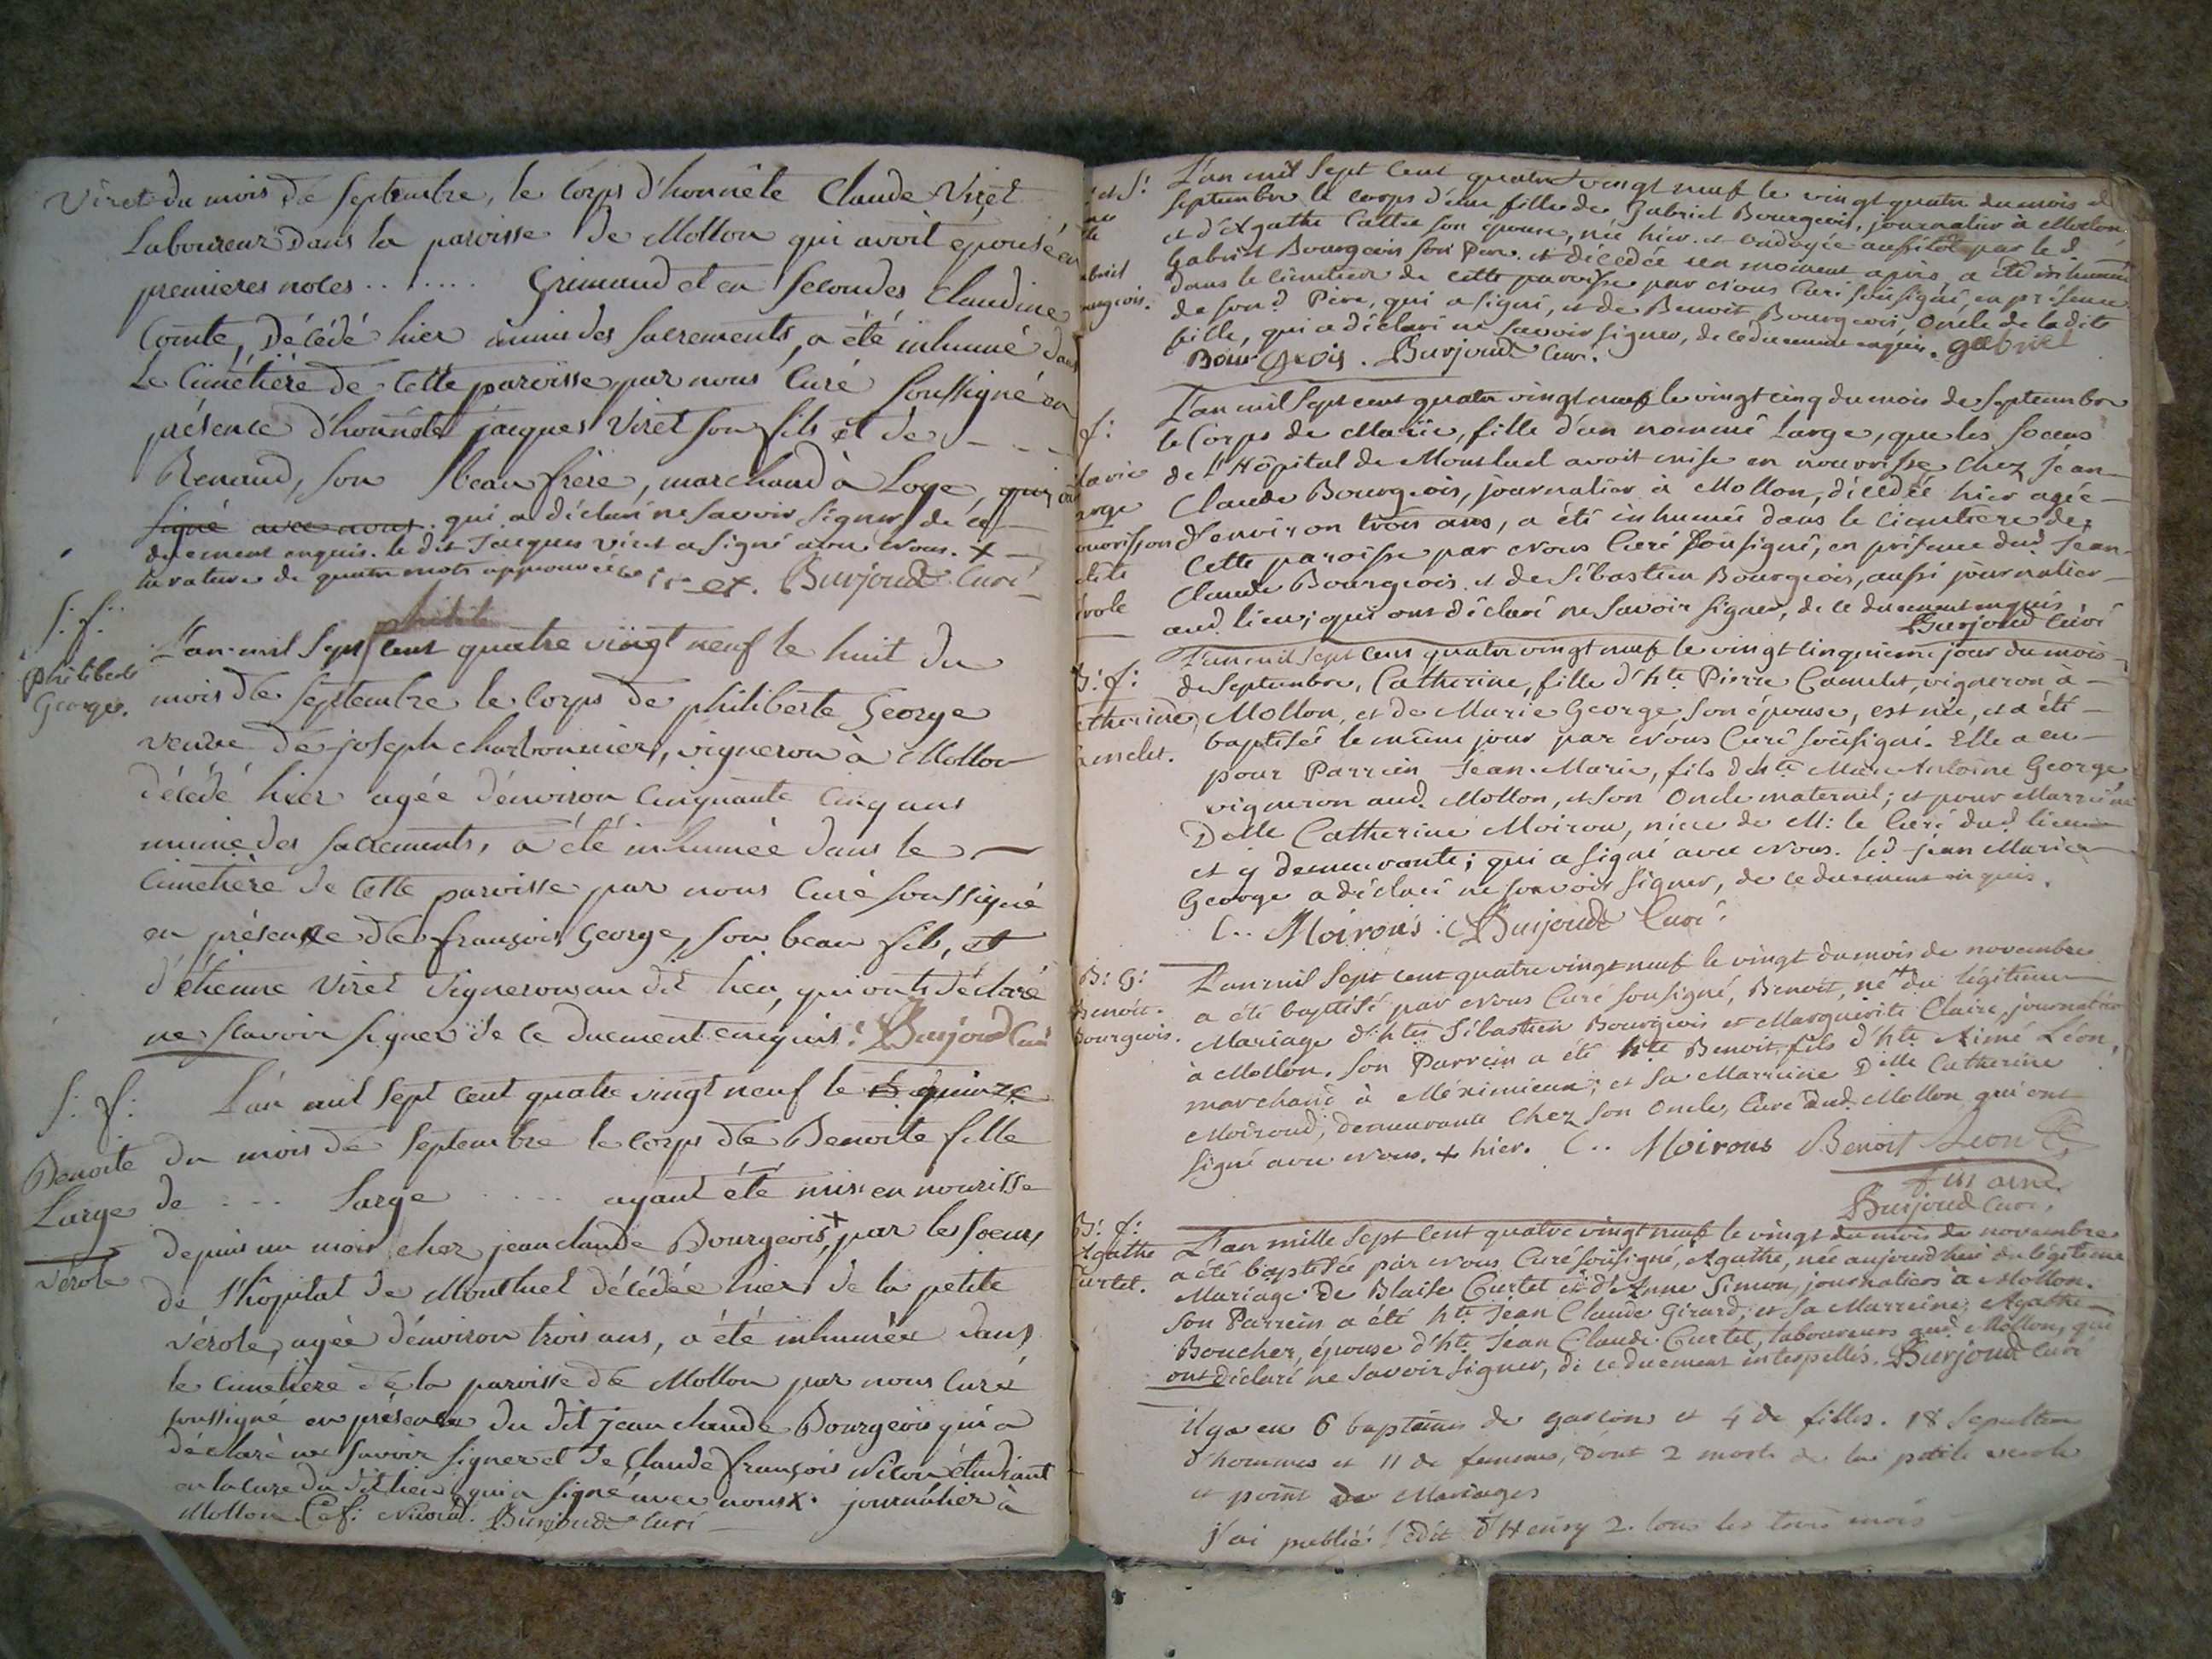 Viret du mois de septembre, le Corps d'honnête Claude Viret
Laboureur dans la paroisse de Mollon qui avoit epousé en
premieres noces ........ Grimaud et en Secondes Claudine
Comte, Décédé hier muni des sacrements, a été inhumé dans
Le Cimétiére de cette paroisse par nous Curé Soussigné en
présence d'honnête jacques Viret son fils et de - - -
Renaud, son beau frere, marchand à Loye, qui ont
signé avec nous. qui a déclaré ne savoir signer de ce
duement enquis. le dit Jacques Viret a signé avec Nous. x
la rature de quatre mots approuvée Burjoud Curé
S: f:
Philiberte
George.
philib
L'an mil Sept cent quatre vingt neuf le huit du
mois de septembre le Corps de philiberte George
veuve de joseph charbonnier, vigneron à Mollon
décédé hier agée d'environ Cinquante Cinq ans
munie des sacrements, a été inhumée dans le
Cimetière de cette paroisse par nous Curé Soussigné
en présence de françois George, son beau fils, et
d'étienne Viret Vignerons au dit lieu, qui ont déclaré
ne scavoir signer de ce duement enquis. Burjoud Curé
S: f:
Benoite
Large
Vérole
L'an mil sept cent quatre vingt neuf le quinze
du mois de Septembre le corps de Benoite fille
de .... Large .... ayant été mise en nourisse
depuis un mois chez jean claude Bourgeois x par les Soeurs
de l'hôpital de Montluel décédée hier de la petite
vérole, agée d'environ trois ans, a été inhumée dans
le cimetiere de la paroisse de Mollon par nous Curé
soussigné en présence du dit jean claude Bourgeois qui a
déclaré ne savoir signer et de Claude françois Nicou étudiant
en la cure du dit lieu qui a signé avec nous x. journalier à
Mollon C. f: Burjoud Curé
et S:
abriel
ourgeois.
L'an mil Sept Cent quatre vingt neuf le vingt quatre du mois de
septembre le corps d'une fille de Gabriel Bourgeois, journalier à Mollon
et d'Agathe Cattie son épouse, née hier et ondoyée aussitôt par led.
Gabriel Bourgeois son Pere et décédée un moment après, a été inhumée
dans le cimetiere de cette paroisse par Nous Curé sousigné, en présence
de son d. Pere, qui a signé, et de Benoit Bourgeois, Oncle de ladite
fille, qui a déclaré ne savoir signer, de ce duement enquis. gabriel
Bour Geois. Burjoud Curé.
f:
Marie
arge
ourisson
L'an mil Sept cent quatre vingt neuf le vingt cinq du mois de Septembre
le Corps de Marie, fille d'un nommé Large, que les soeurs
de l'Hôpital de Montluel avoit mise en nourrisse chez Jean-
Claude Bourgeois, journalier à Mollon, décédée hier agée
d'environ trois ans, a été inhumée dans le cimetiere de
cette paroisse par Nous Curé Sousigné, en présence dud. Jean-
Claude Bourgeois et de Sébastien Bourgeois, aussi journalier
aud. lieu; qui ont déclaré ne savoir signer, de ce duement enquis
Burjoud Curé
etite
érole
B: f:
atherine
amelet.
L'an mil Sept Cent quatre vingt neuf le vingt cinquieme jour du mois
de Septembre, Catherine, fille d'hte Pierre Camelet, vigneron à
Mollon, et de Marie George son épouse, est née, et a été
baptisée le même jour par Nous Curé sousigné. Elle a eu
pour Parrein Jean-Marie, fils d'hte Marc Antoine George
vigneron aud. Mollon, et son Oncle maternel; et pour Marreine
Delle Catherine Moirou, niece de M: le Curé dud. lieu
et y demeurante; qui a signé avec Nous. led. Jean Marie
George a déclaré ne savoir signer, de ce duement enquis.
C.. Moirous. Burjoud Curé
B: G:
Benoit
Bourgeois.
L'an mil Sept cent quatre vingt neuf le vingt du mois de novembre
a été baptisé par Nous Curé sousigné, Benoit, né + du légitime
Mariage d'htes Sébastien Bourgeois et Marguerite Claire, journaliers
à Mollon. Son Parrein a été hte Benoit, fils d'hte Aimé Léon,
marchand à Méximieux; et sa Marreine Delle Catherine
Moiroud, demeurante chez son Oncle, Curé dud. Mollon qui ont
signé avec Nous. + hier. C.. Moirous Benoit Leon
fils ainé.
Burjoud Curé.
B: f:
Agathe
Curtet.
L'an mille Sept Cent quatre vingt neuf le vingt du mois de novembre
a été baptisée par Nous Curé sousigné, Agathe, née aujourd'hui du légitime
Mariage de Blaise Curtet et d'Anne Simon, journaliers à Mollon.
Son Parrein a été hte Jean Claude Girard, et sa Marreine, Agathe
Boucher, épouse d'hte Jean Claude Curtet, laboureurs aud. Mollon, qui
ont déclaré ne savoir signer, de ce duement interpellés. Burjoud Curé
il y a eu 6 baptêmes de garcons et 4 de filles. 18 Sepultures
d'hommes et 11 de femmes, dont 2 morts de la petite verole
et point de Mariages
j'ai publié l'edit d'Henry 2. tous les trois mois